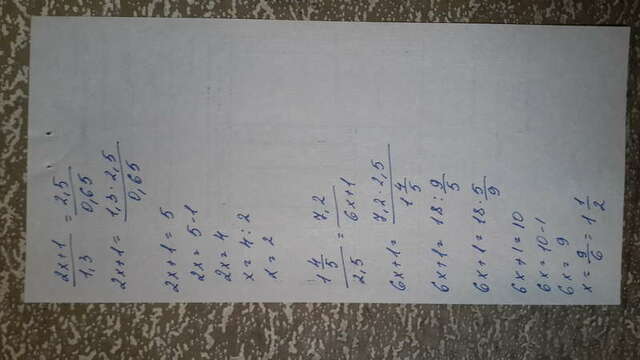 (2x+1)/1,3 = 2,5/0,65
2x+1 = (1,3·2,5)/0,65
2x+1=5
2x=5-1
2x=4
x=4:2
x=2
1 4/5 / 2,5 = 7,2/(6x+1)
6x+1= (7,2·2,5)/(1 4/5)
6x+1= 18: 9/5
6x+1=18· 5/9
6x+1=10
6x=10-1
6x=9
x= 9/6 =1 1/2